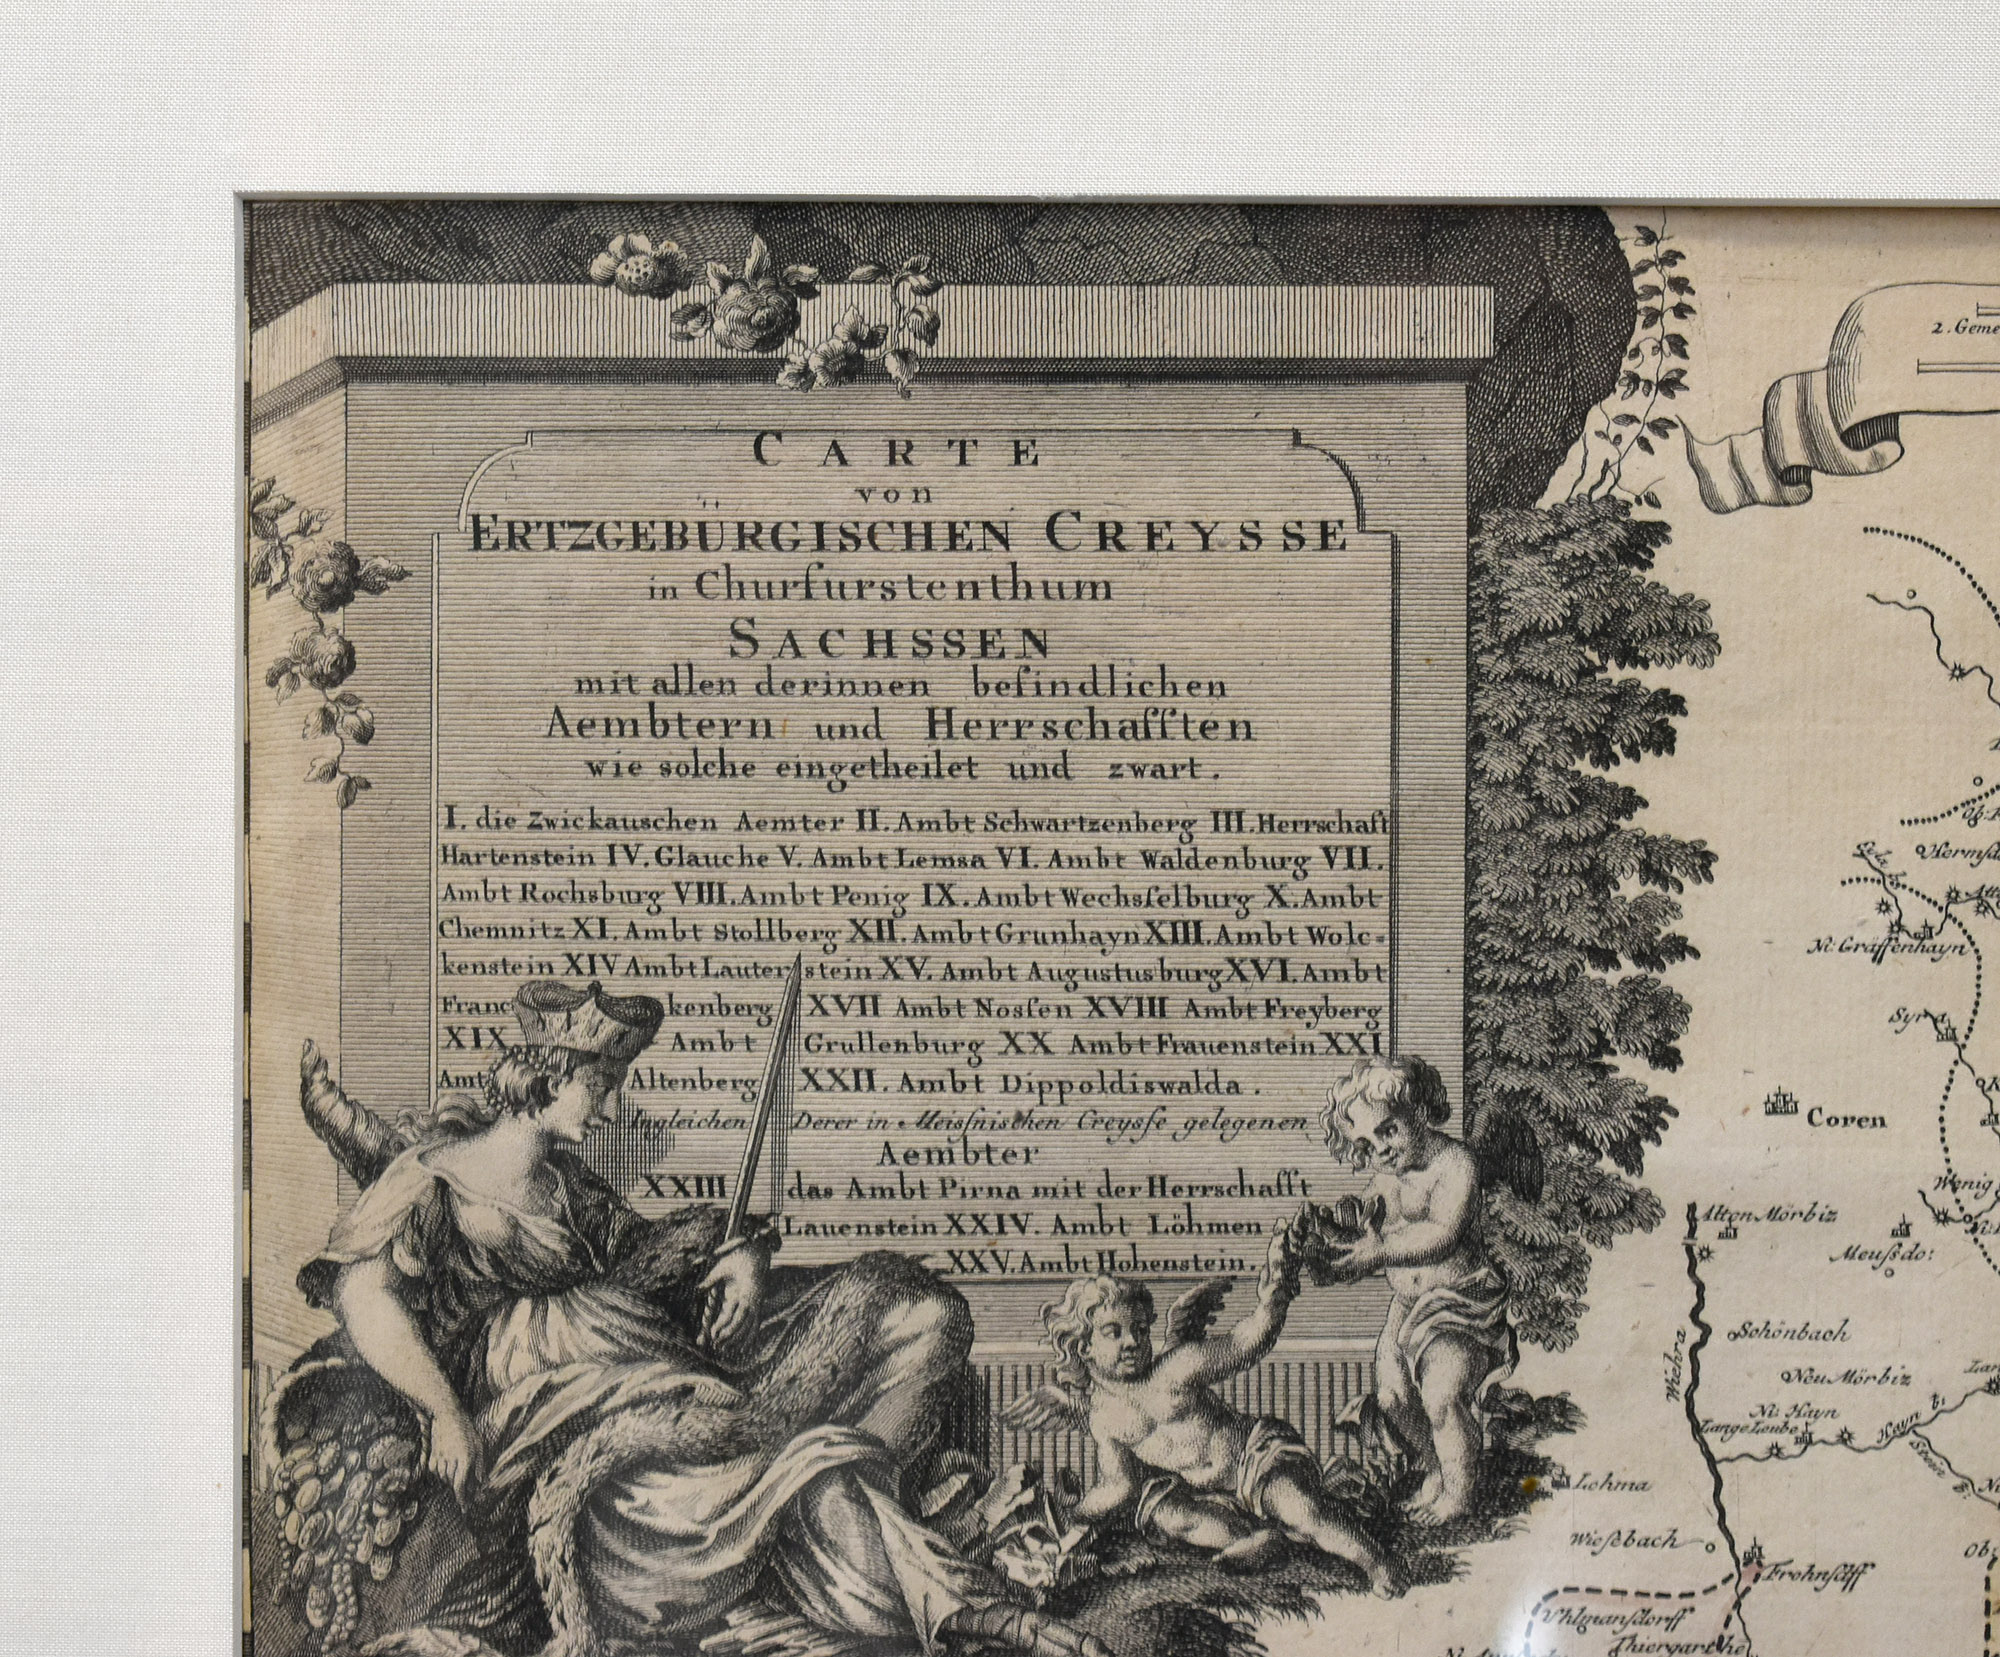 CARTE
von
ERTZGEBÜRGISCHEN CREYSSE
in Churfurstenthum
SACHSSEN
mit allen derinnen befindlichen
Aembtern und Herrschafften
wie solche eingetheilet und zwart.
I. die Zwickauschen Aemter II. Ambt Schwartzenberg III. Herrschaft
Hartenstein IV. Glauche V. Ambt Lemsa VI. Ambt Waldenburg VII.
Ambt Rochsburg VIII. Ambt Penig IX. Ambt Wechsſelburg X. Ambt
Chemnitz XI. Ambt Stollberg XII. Ambt Grunhayn XIII. Ambt Wolc-
kenstein XIV Ambt Lauterstein XV. Ambt Augustusburg XVI. Ambt
Franckenberg XVII Ambt Nosſen XVIII Ambt Freyberg
XIX. Ambt Grullenburg XX Ambt Frauenstein XXI
Amt Altenberg XXII. Ambt Dippoldiswalda.
Ingleichen Derer in Meisſnischen Creysſe gelegenen
Aembter
XXIII das Ambt Pirna mit der Herrschafft
Lauenstein XXIV. Ambt Löhmen
XXV. Ambt Hohenstein.
2. Geme
Hermsdo
Ni: Gräffenhayn
Syra
Coren
Wenig
Alten Mörbiz
Meuſsdo:
Schönbach
Wiehra
Neu Mörbiz
Ni: Hayn
Lange Leube
Hayn b:
Stein b:
Lohma
Wieſebach
Ob:
Frohnſdff
Vhlmansdorff
Thiergarthe